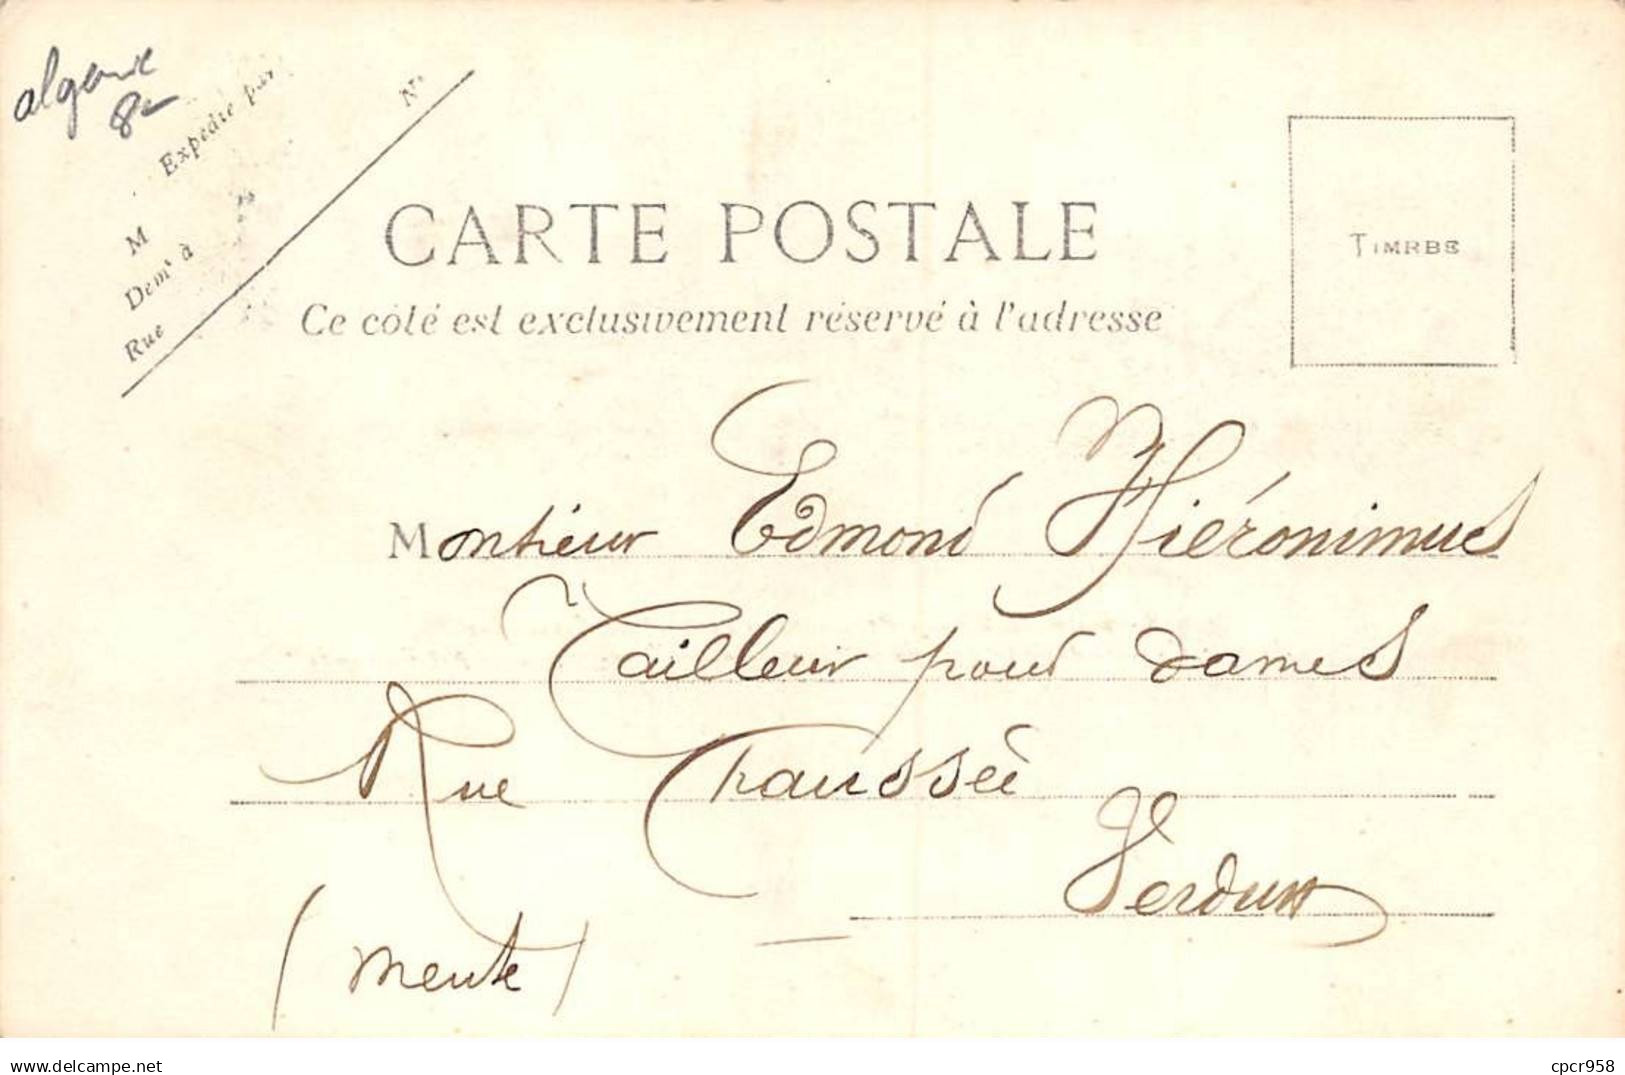 algerie
8-
Expédié par
N°
M
Demt à
Rue
CARTE POSTALE
Ce côté est exclusivement réservé à l'adresse
TIMRBE
Montieur Edmond Hiéronimus
Tailleur pour dames
Rue Chaussée
Verdun
(Meuse)
www.delcampe.net
cpcr958